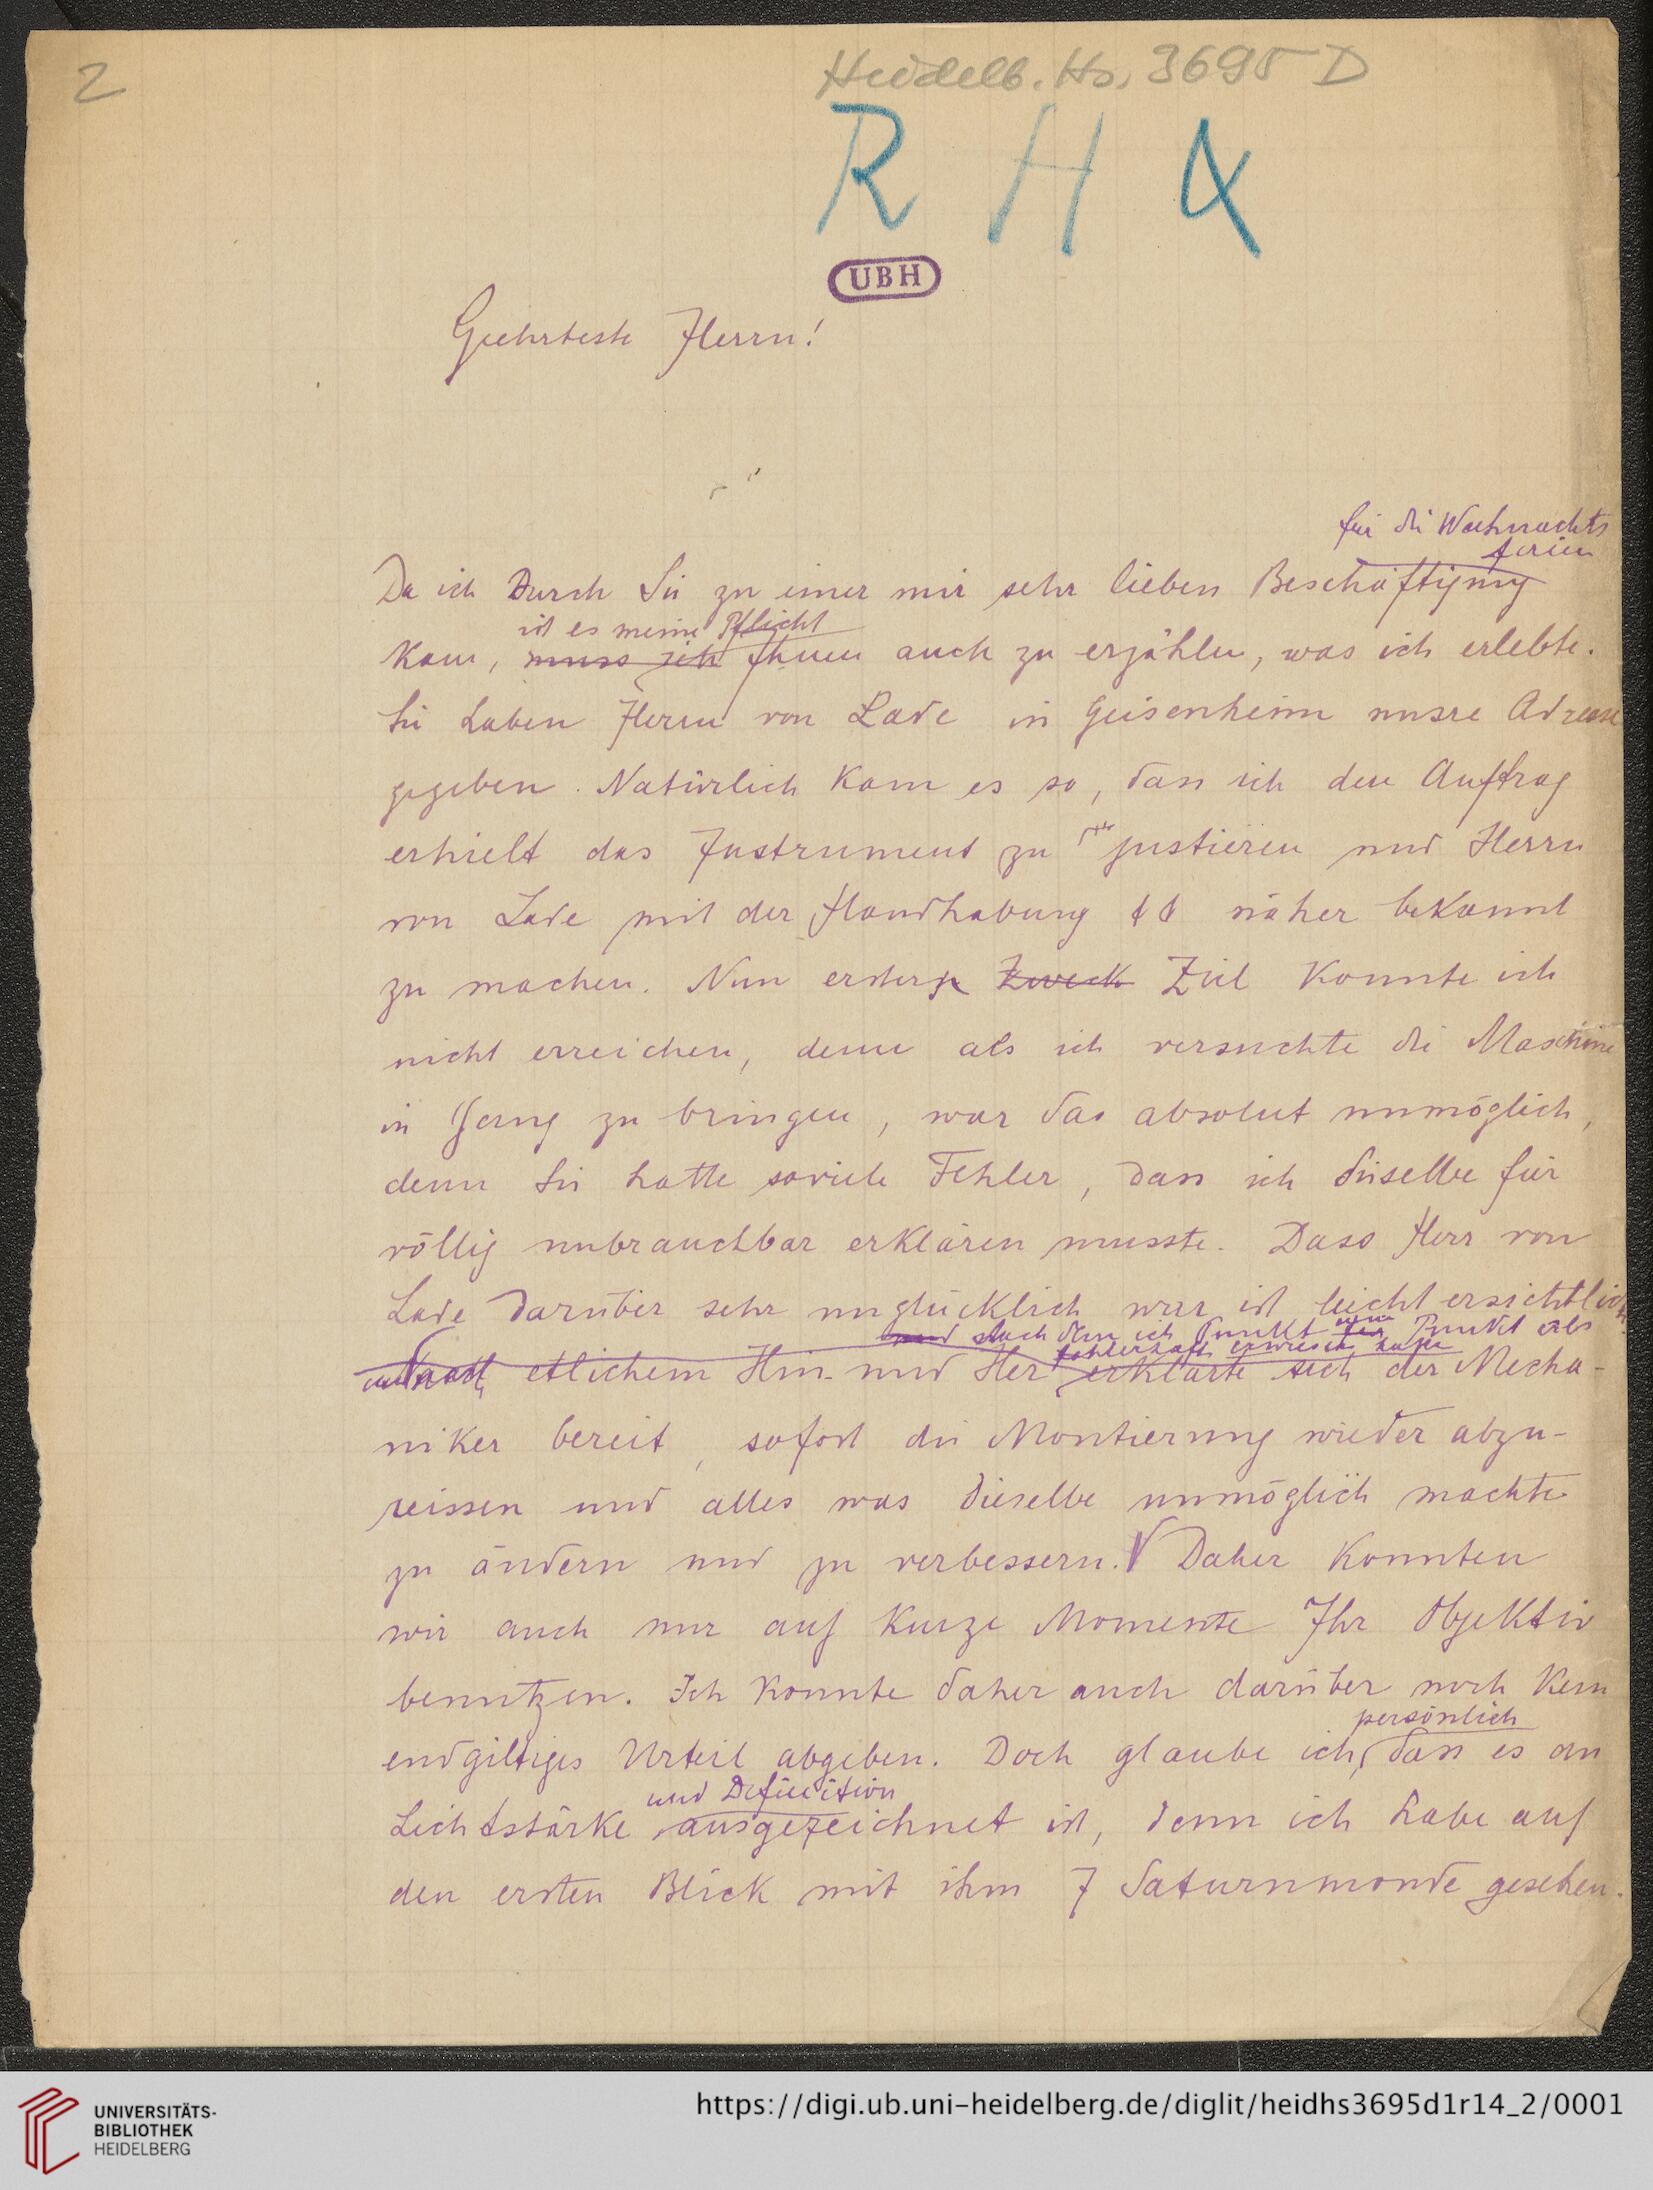 2
Heidelb. Hs. 3695 D
R H 4
UBH
Geehrteste Herrn!
für die Weihnachts
ferien
Da ich durch Sie zu einer mir sehr lieben Beschäftigung
ist es meine Pflicht
kam, muss ich Ihnen auch zu erzählen, was ich erlebte.
Sie haben Herrn von Lade in Geisenheim unsre Adresse
gegeben. Natürlich kam es so, dass ich den Auftrag
erhielt das Instrument zu justieren und Herrn
von Lade mit der Handhabung näher bekannt
zu machen. Nun ersteres Zweck Ziel konnte ich
nicht erreichen, denn als ich versuchte die Maschine
in Gang zu bringen, war das absolut unmöglich,
denn sie hatte soviele Fehler, dass ich dieselbe für
völlig unbrauchbar erklären musste. Dass Herr von
Lade darüber sehr unglücklich war ist leicht ersichtlich.
und nach dem ich Punkt für Punkt als
fehlerhaft erwiesen hatte
Nach etlichem Hin- und Her erklärte sich der Mecha-
niker bereit, sofort die Montierung wieder abzu-
reissen und alles was dieselbe unmöglich machte
zu ändern und zu verbessern. Daher konnten
wir auch nur auf kurze Momente Ihr Objektiv
benutzen. Ich konnte daher auch darüber noch kein
persönlich
endgiltiges Urteil abgeben. Doch glaube ich, dass es an
und Definition
Lichtstärke ausgezeichnet ist, denn ich habe auf
den ersten Blick mit ihm 7 Saturnmonde gesehen.
UNIVERSITÄTS-
BIBLIOTHEK
HEIDELBERG
https://digi.ub.uni-heidelberg.de/diglit/heidhs3695d1r14_2/0001